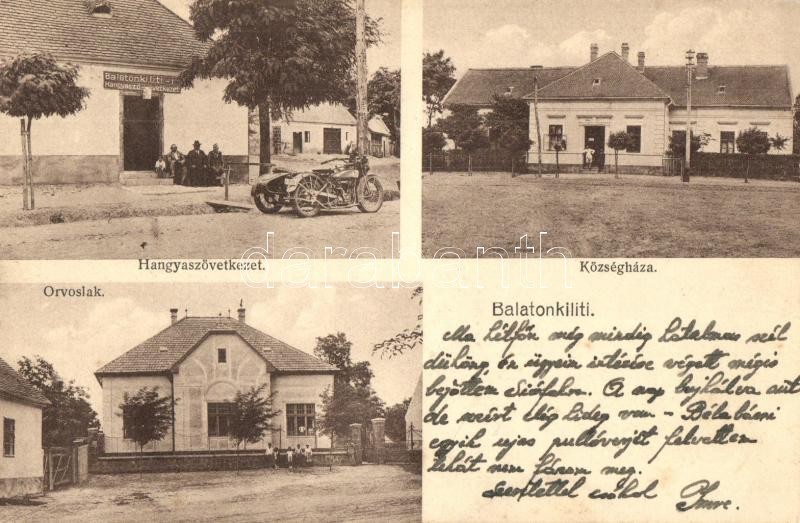 Balatonkiliti-i
Hangyaszövetkezet
Hangyaszövetkezet.
Községháza.
darabanth.com
Orvoslak.
Balatonkiliti.
Ma hétfőn még mindig hatalmas szél
dühöng, én ügyeim intézése végett mégis
bejöttem Siófokra. A nap süt
de azért elég hideg van – Béla bácsi
egyik ujas pullóverjét felvettem
tehát nem fázom meg.
Szeretettel csókol Imre.